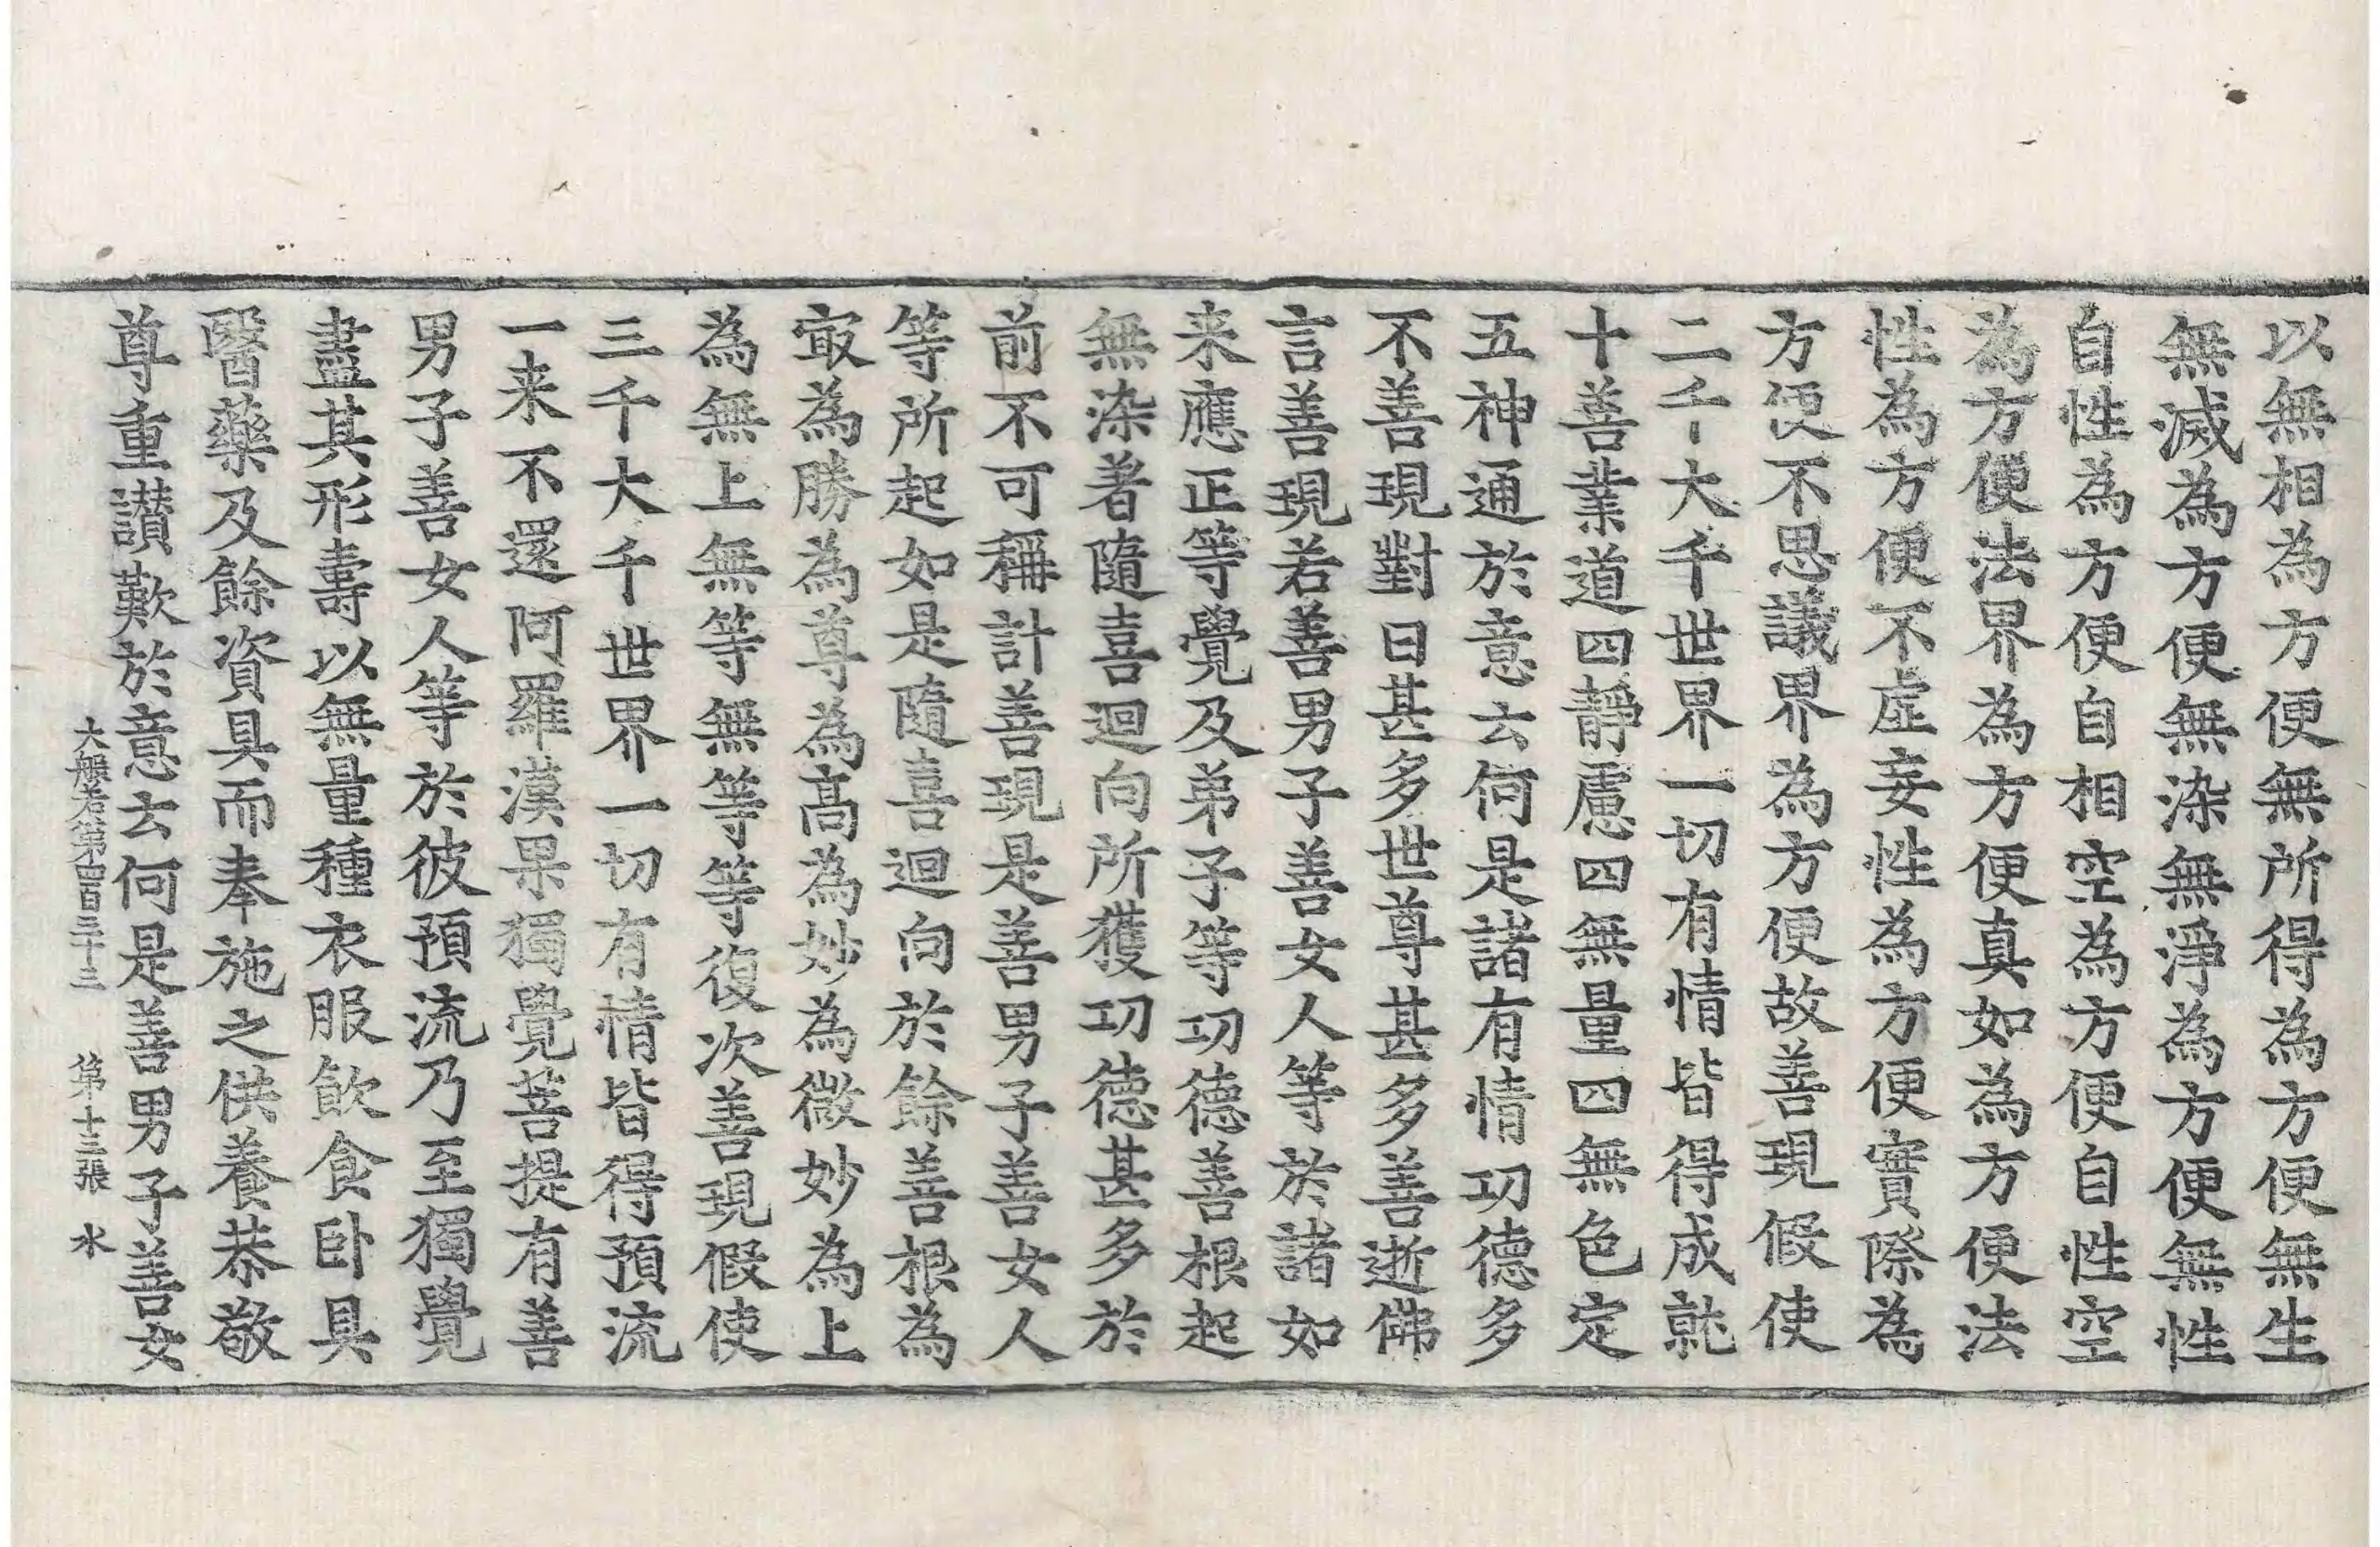 以無相為方便無所得為方便無生
無滅為方便無染無淨為方便無性
自性為方便自相空為方便自性空
為方便法界為方便真如為方便法
性為方便不虛妄性為方便實際為
方便不思議界為方便故善現假使
三千大千世界一切有情皆得成就
十善業道四靜慮四無量四無色定
五神通於意云何是諸有情功德多
不善現對曰甚多世尊甚多善逝佛
言善現若善男子善女人等於諸如
来應正等覺及弟子等功德善根起
無染著隨喜迴向所獲功德甚多於
前不可稱計善現是善男子善女人
等所起如是隨喜迴向於餘善根為
㝡為勝為尊為高為妙為微妙為上
為無上無等無等等復次善現假使
三千大千世界一切有情皆得預流
一来不還阿羅漢果獨覺菩提有善
男子善女人等於彼預流乃至獨覺
盡其形壽以無量種衣服飲食臥具
醫藥及餘資具而奉施之供養恭敬
尊重讃歎於意云何是善男子善女
大般若第四百三十三 第十三張 水